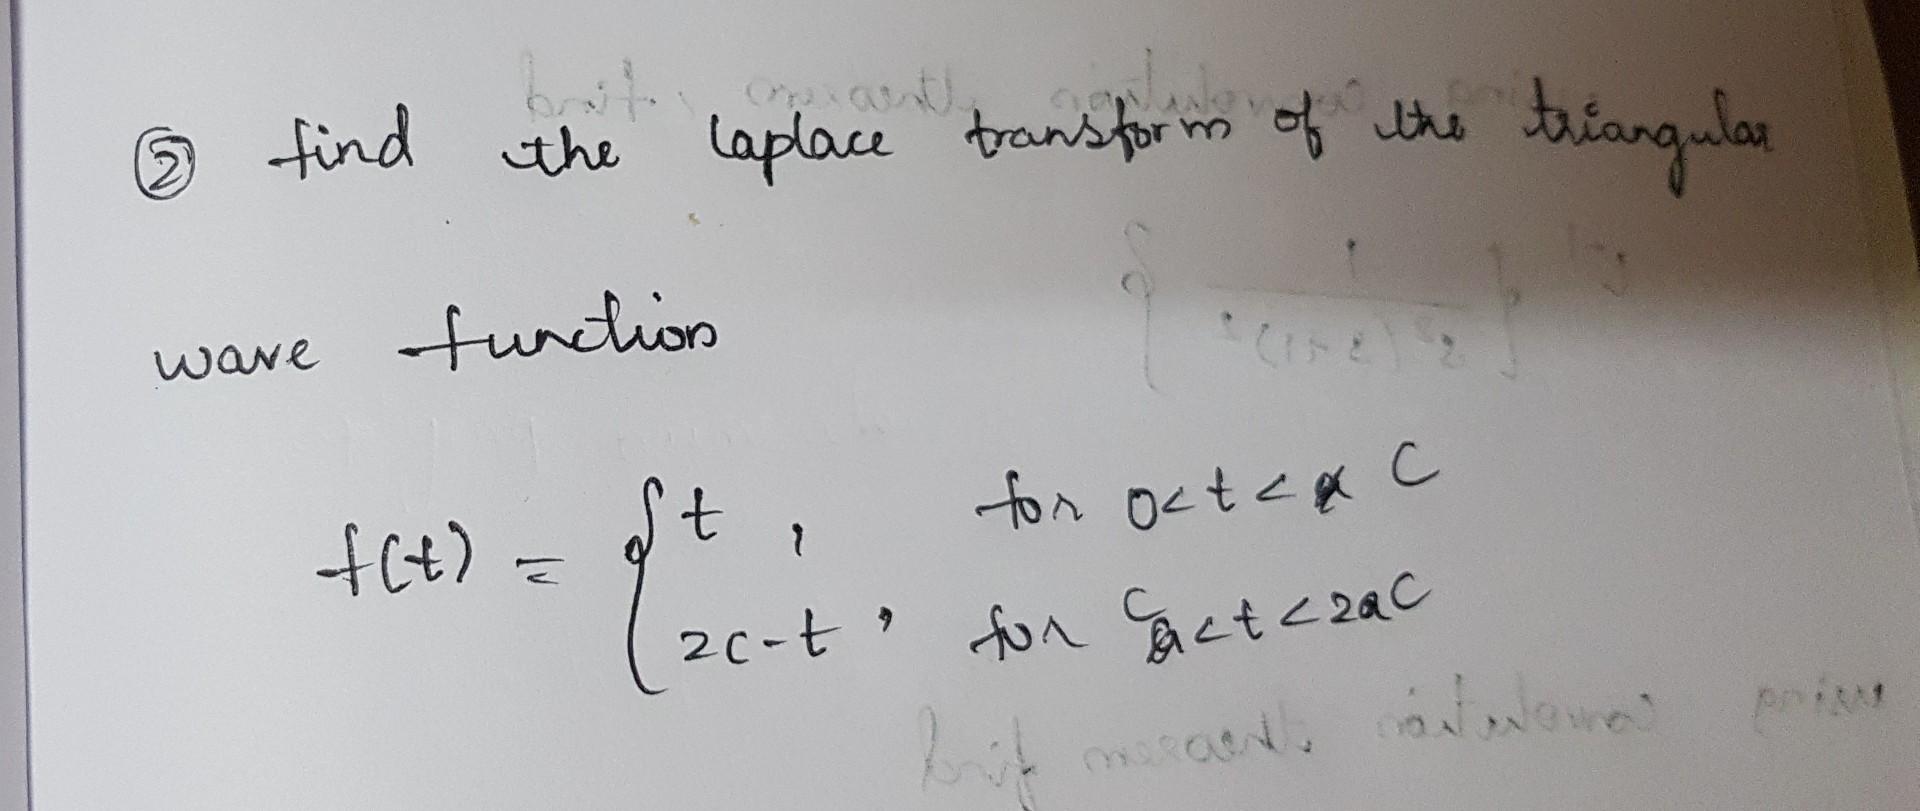 ② find the laplace transform of the triangular
wave function
f(t) = { t , for 0<t< C
2c-t , for C<t<2C